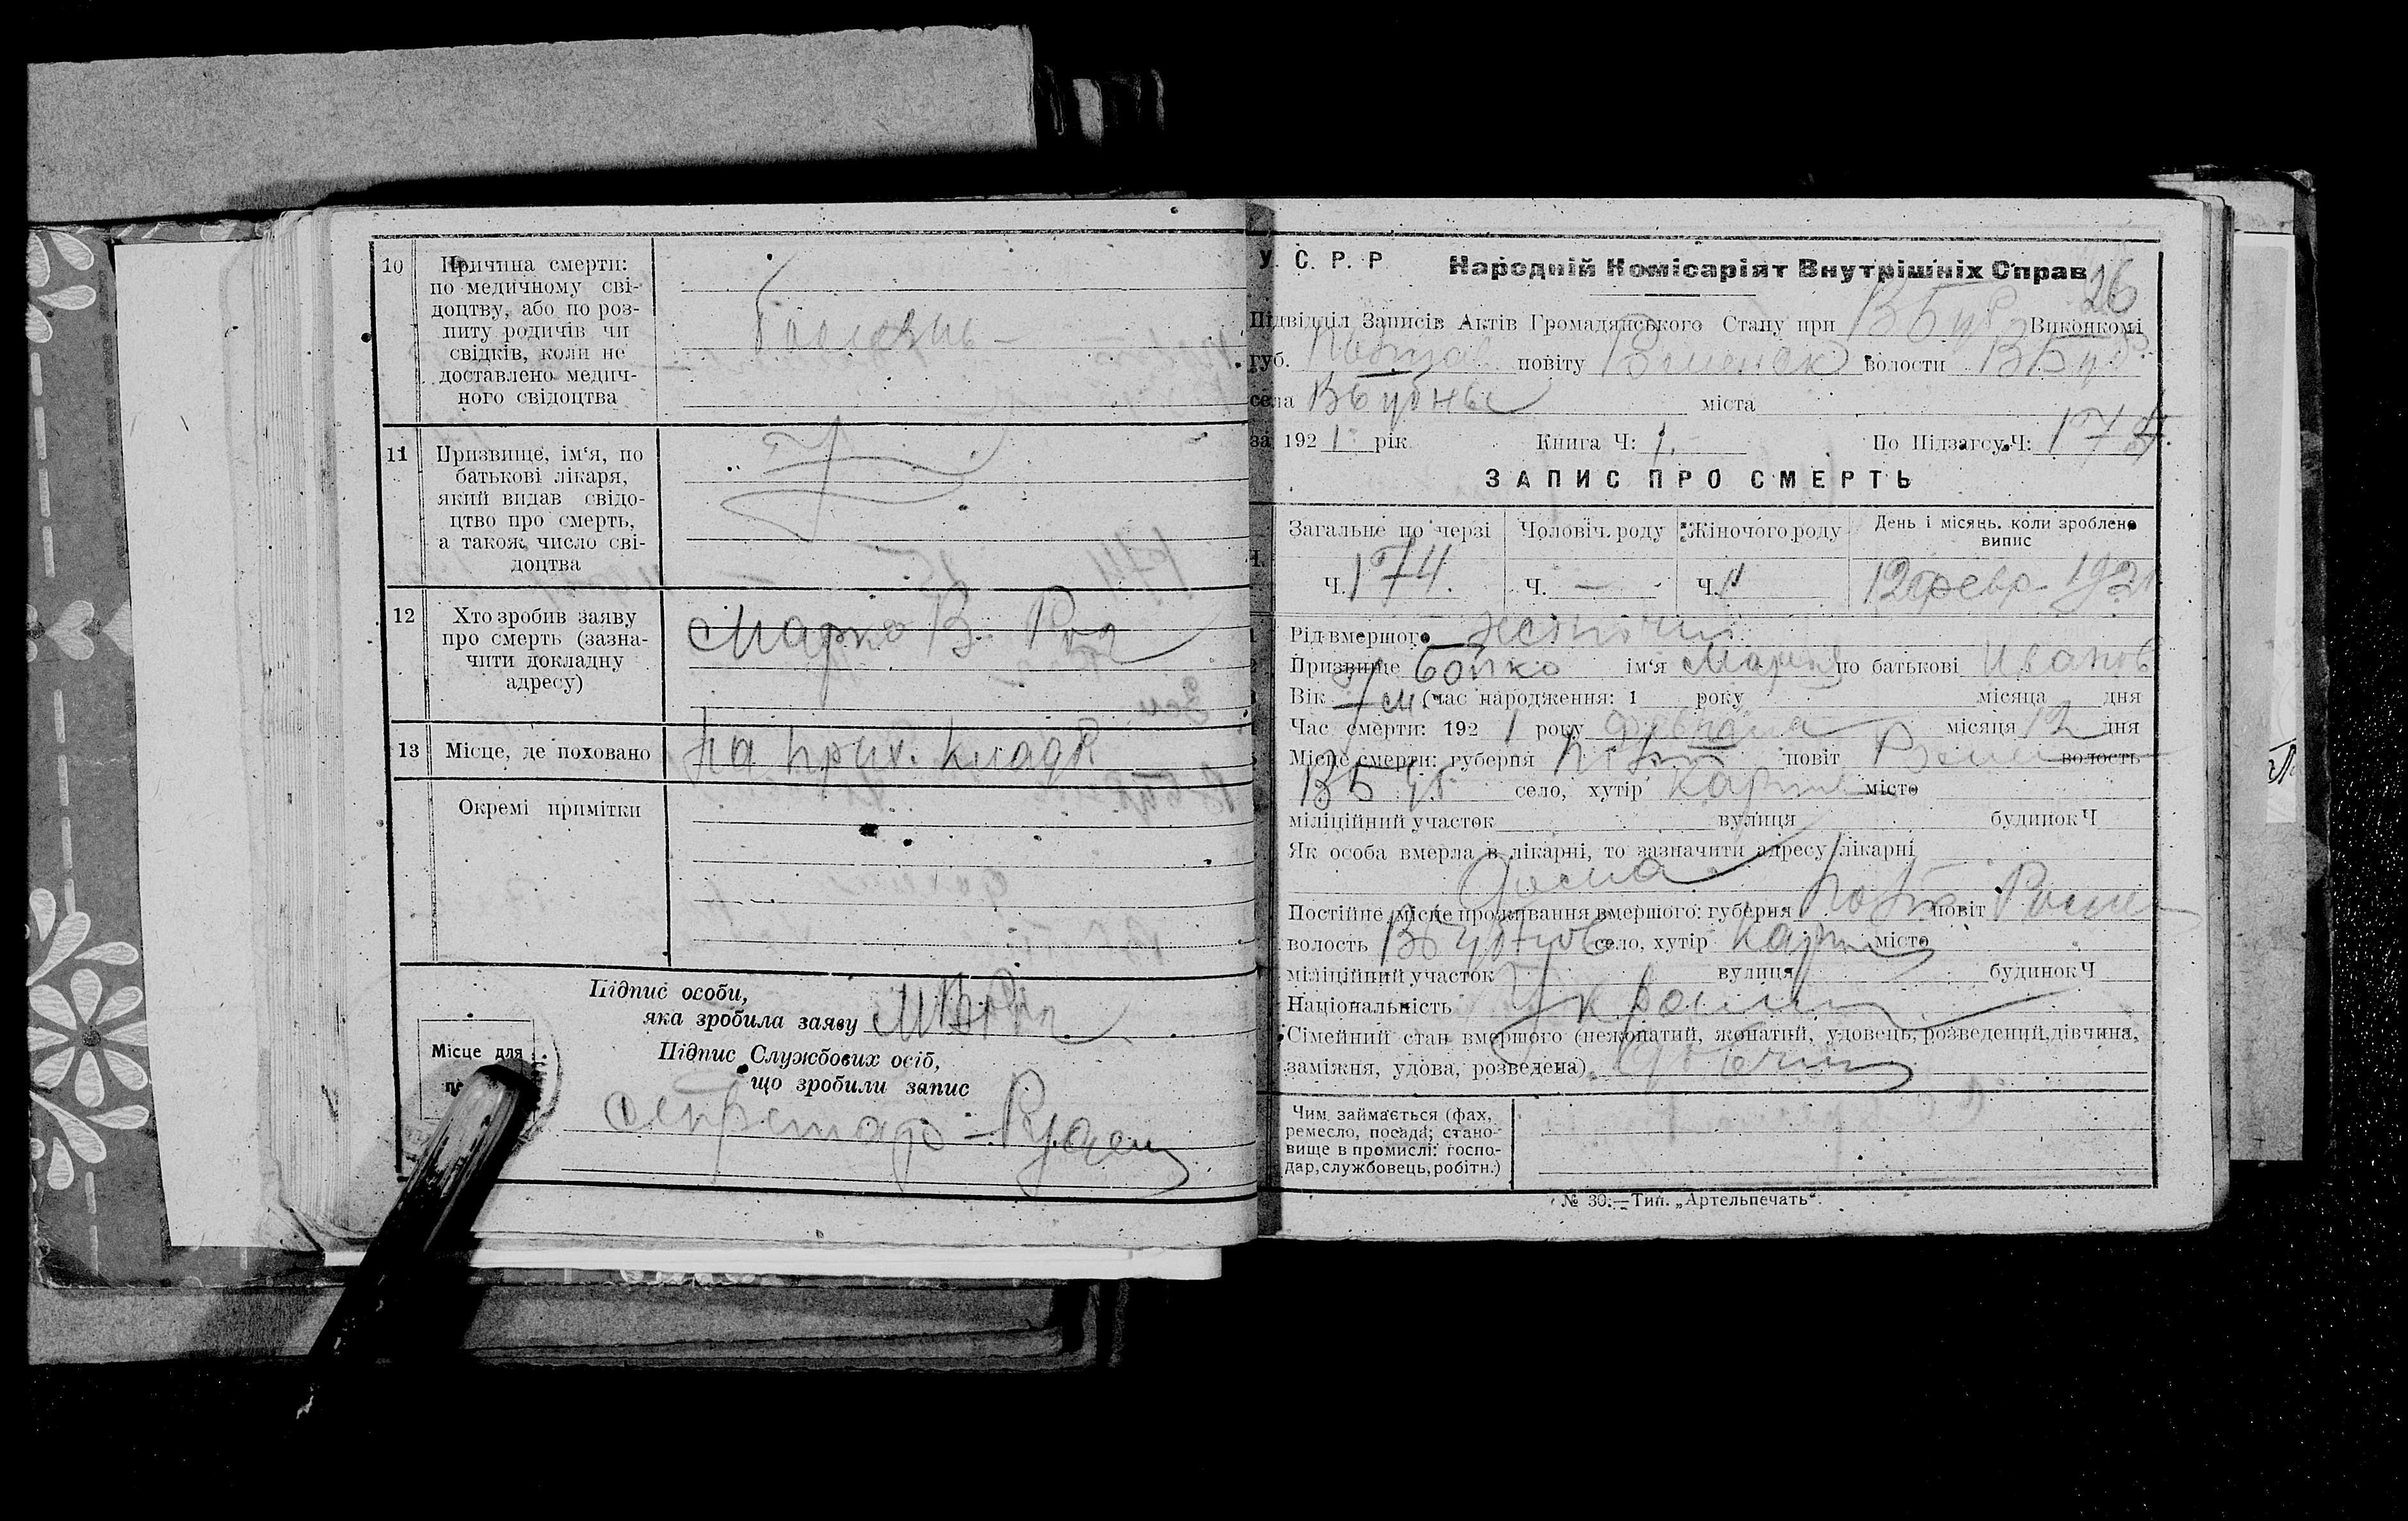 10
Причина смерти:
по медичному сві-
доцтву, або по роз-
питу родичів чи
свідків, коли не
доставлено медич-
ного свідоцтва
11
Призвище, ім‘я, по
батькові лікаря,
який видав свідо-
цтво про смерть,
а також число сві-
доцтва
12
Хто зробив заяву
про смерть (зазна-
чити докладну
адресу)
Марко В.
13
Місце, де поховано
На прих. кладб
Окремі примітки
Підпис особи,
яка зробила заяву
Місце для
Підпис Службових осіб,
що зробили запис
У. С. Р. Р
Народній Комісаріят Внутрішніх Справ
26
Підвідділ Записів Актів Громадянського Стану при ВБуб Виконкомі
губ. Полтав повіту Роменск волости ВБуб
села ВБубны міста
за 1921 рік Книга Ч: 1. По Підзагсу Ч: 174.
ЗАПИС ПРО СМЕРТЬ
Загальне по черзі Чоловіч. роду Жіночого роду День і місяць, коли зроблено
випис
Ч. 174. Ч. — Ч. 12 февр. 1921
Рід вмершого женочий
Призвище Бойко ім‘я Мария по батькові Иванов
Вік 7 м. (час народження: 1 року місяца дня
Час смерти: 1921 року февраля місяця 12 дня
Місце смерти: губерня Полт повіт Ромен волость
ВБуб село, хутір місто
міліційний участок вулиця будинок Ч
Як особа вмерла в лікарні, то зазначити адресу лікарні
Дома
Постійне місце проживання вмершого: губерня Полт повіт Ромен
волость село, хутір місто
міліційний участок вулиця будинок Ч
Національність Украин
Сімейний стан вмершого (нежонатий, жонатий, удовець, розведений, дівчина,
заміжня, удова, розведена)
Чим займається (фах,
ремесло, посада; стано-
вище в промислі: госпо-
дар, службовець, робітн.)
№ 30.—Тип. „Артельпечать“.